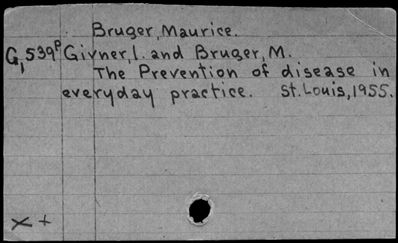 Bruger, Maurice.
G,539P Givner, I. and Bruger, M.
The Prevention of disease in
everyday practice. St. Louis, 1955.
x +